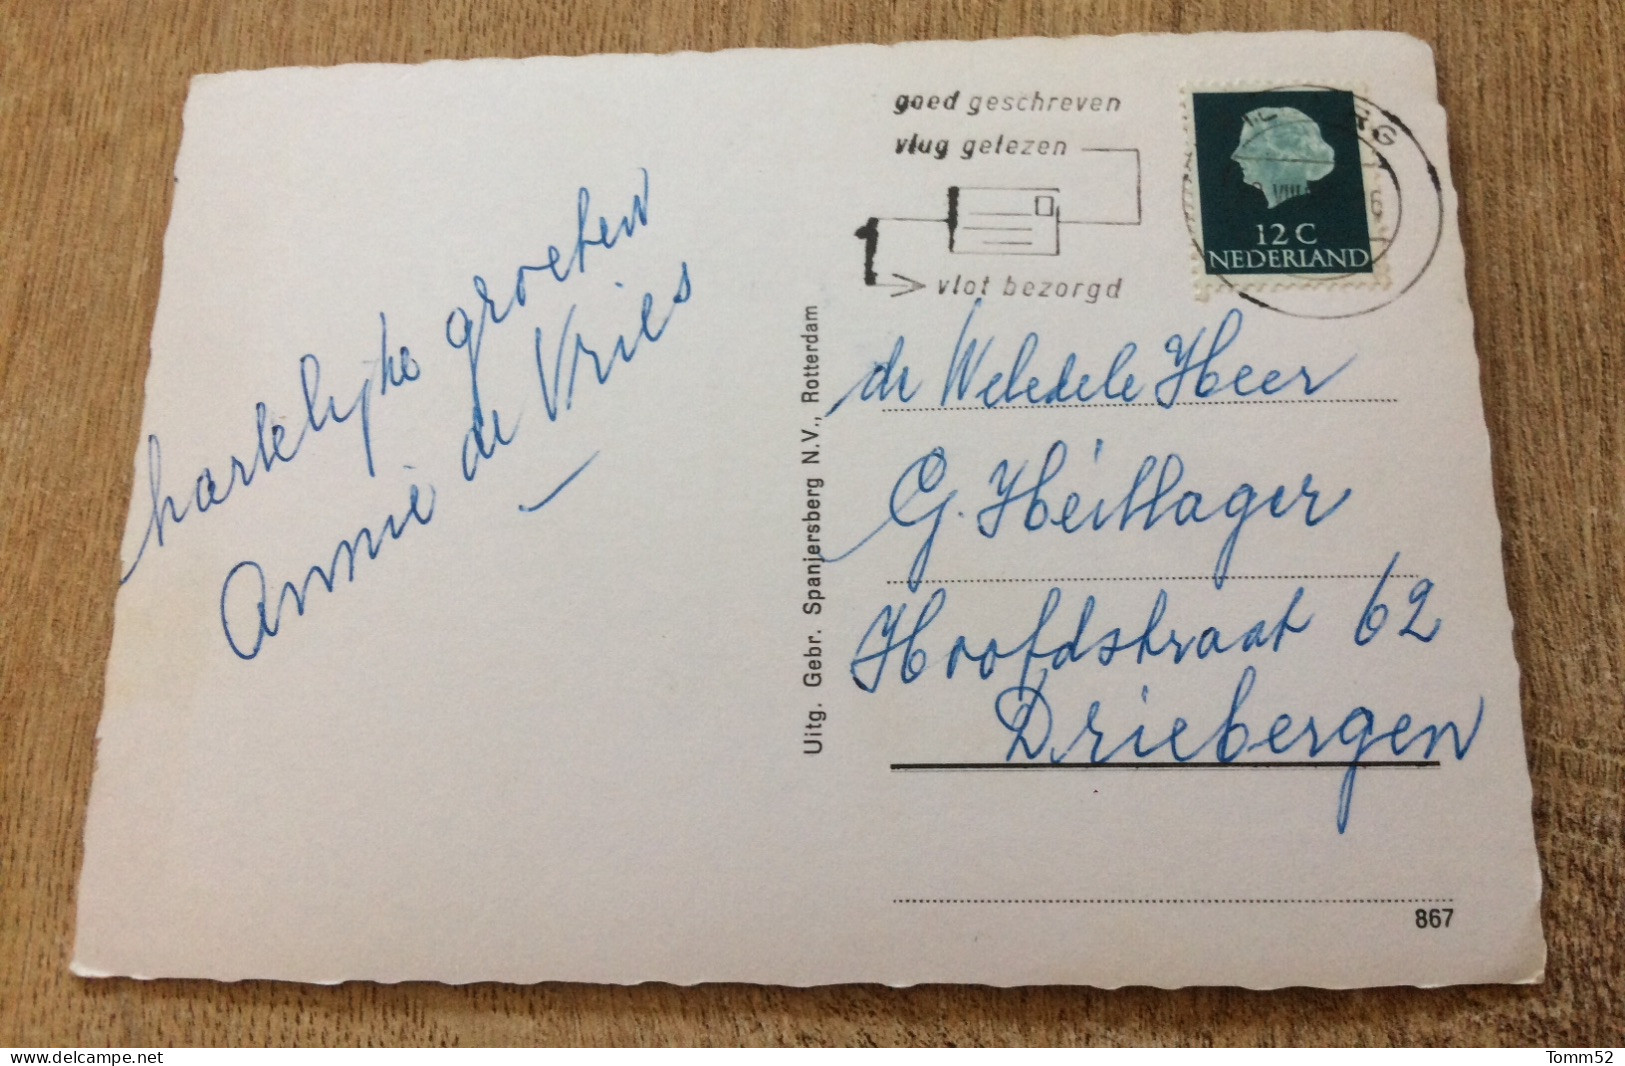 hartelijke groeten
Annie de Vries
goed geschreven
vlug gelezen
vlot bezorgd
12 C
NEDERLAND
Uitg. Gebr. Spanjersberg N.V., Rotterdam
de Weledele Heer
G. Heillager
Hoofdstraat 62
Driebergen
867
Tomm52
www.delcampe.net